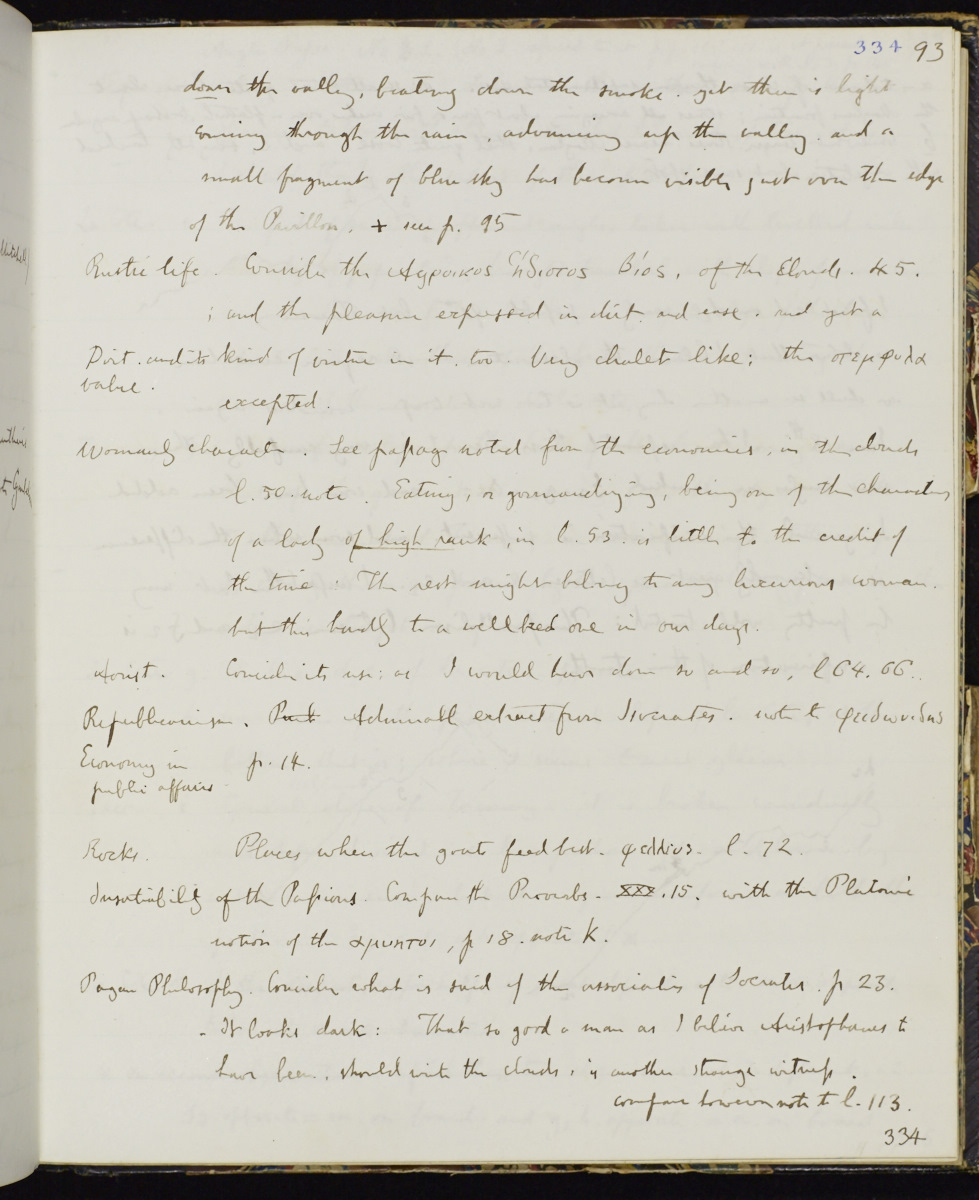 334 93
down the valley, beating down the smoke. yet there is light
coming through the rain, advancing up the valley. and a
small fragment of blue sky has become visible just over the edge
of the Pavillon. + see p. 95
Rustic life. Consider the Αγροικος ἥδιστος βίος, of the Clouds. 45.
; and the pleasure expressed in dirt and ease. and yet a
Dirt. and its kind of virtue in it. too. Very chalet like; the στεμφυλα
value.
excepted.
Womanly character. See passage noted from the economics, in the clouds
l. 50. note. Eating, or gormandizing, being one of the characters
of a lady of high rank, in l. 53. is little to the credit of
the time: The rest might belong to any luxurious woman.
but this hardly to a wellbred one in our days.
Aorist. Consider its use; as I would have done so and so, l 64. 66..
Republicanism. Admirable extract from Isocrates. note to φειδωνιδην
Economy in p. 14.
public affairs
Rocks. Places where the goats feed best. φελλευς. l. 72.
Insatiability of the Passions. Compare the Proverbs. XXX. 15. with the Platonic
notion of the αμυητοι, p 18. note k.
Pagan Philosophy. Consider what is said of the associates of Socrates. p 23.
. It looks dark: That so good a man as I believe Aristophanes to
have been, should write the clouds, is another strange witness.
compare however note to l. 113.
334